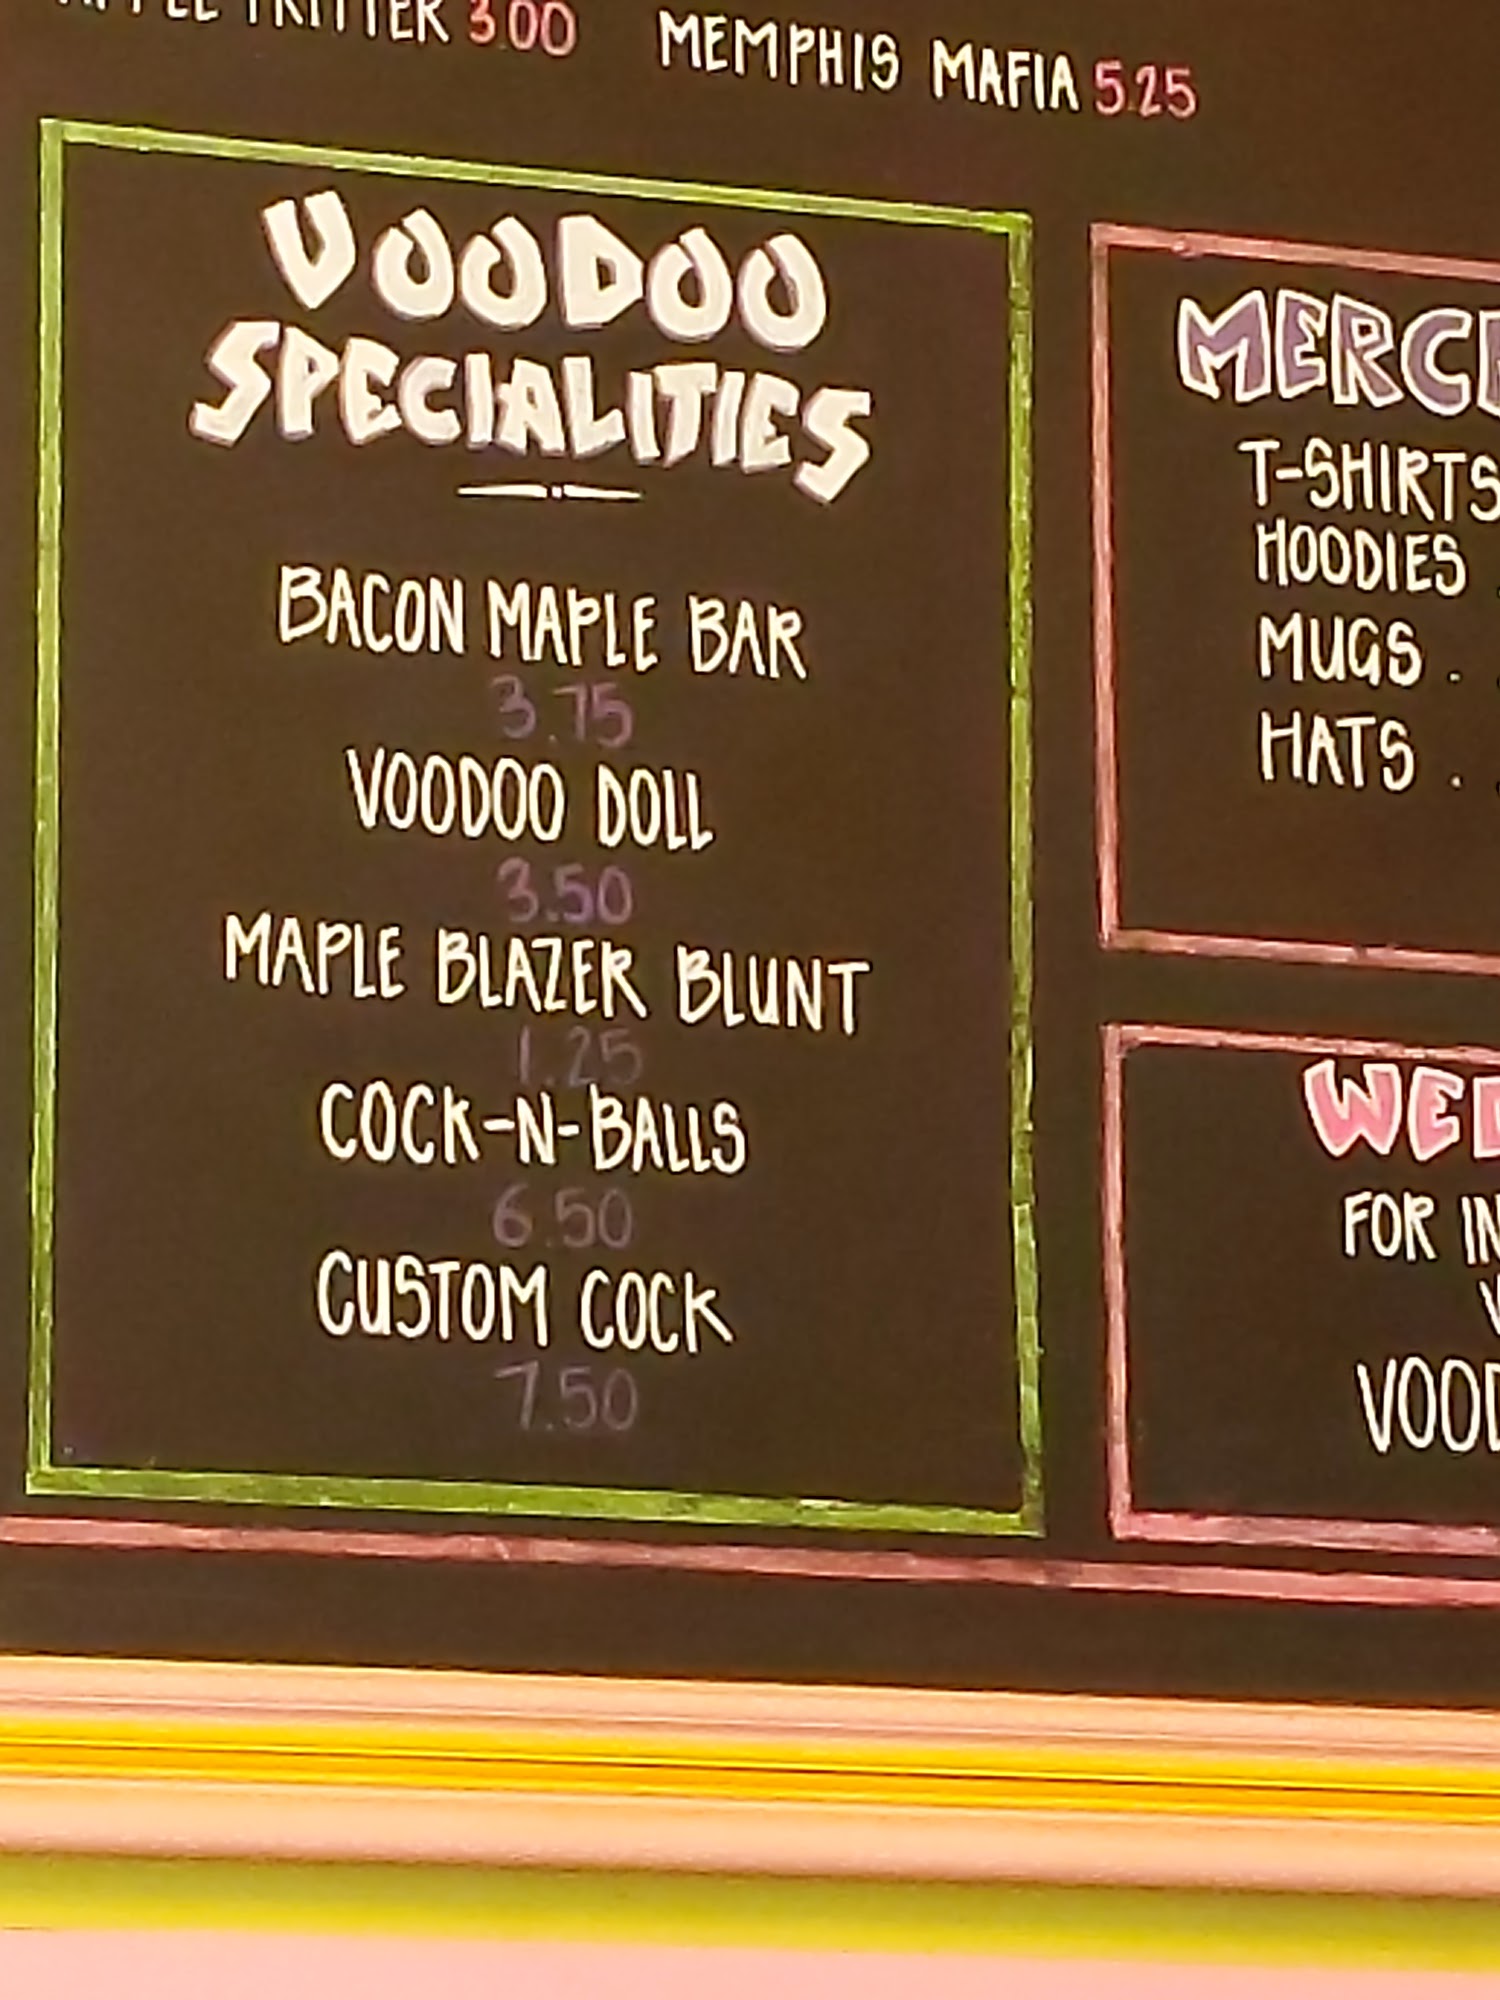 APPLE FRITTER 3.00 MEMPHIS MAFIA 5.25
VOODOO
SPECIALITIES
BACON MAPLE BAR
3.75
VOODOO DOLL
3.50
MAPLE BLAZER BLUNT
1.25
COCK-N-BALLS
6.50
CUSTOM COCK
7.50
MERC
T-SHIRTS
HOODIES .
MUGS .
HATS .
WED
FOR IN
VOOD